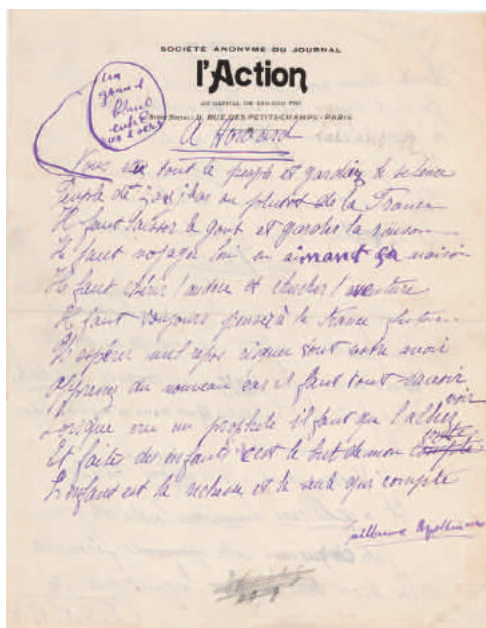 SOCIÉTÉ ANONYME DU JOURNAL
l'Action
AU CAPITAL DE
Siège Social: RUE DES PETITS-CHAMPS - PARIS
un
grand
blanc
entre
les 2 vers
A Howard
Vous tout le peuple et gardez le silence
Peuple de Zanzibar ou plutôt de la France
Il faut laisser le gout et garder la raison
Il faut voyager loin en aimant sa maison
Il faut chérir l'audace et chercher l'aventure
Il faut toujours penser à la France future
N'espérez nul repos risquez tout votre avoir
Apprenez du nouveau car il faut tout savoir
Lorsque crie un prophète il faut que l'alliez voir
Et faites des enfants c'est le but de mon conte
L'enfant est la richesse et la seule qui compte
Guillaume Apollinaire